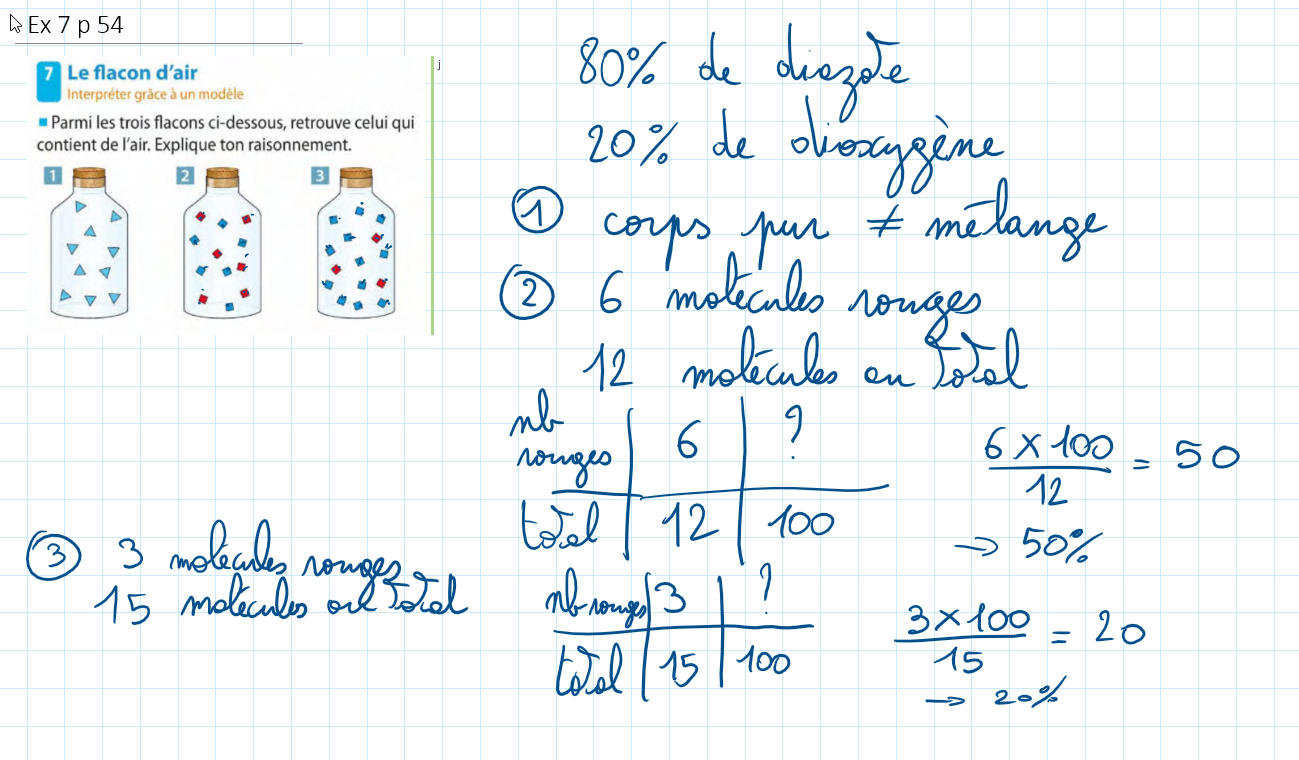 Ex 7 p 54
7 Le flacon d'air
Interpréter grâce à un modèle
Parmi les trois flacons ci-dessous, retrouve celui qui
contient de l'air. Explique ton raisonnement.
1 2 3
j
80% de diazote
20% de dioxygène
① corps pur ≠ mélange
② 6 molécules rouges
12 molécules au total
nb rouges | 6 | ?
total | 12 | 100
6 × 100 / 12 = 50
→ 50%
③ 3 molécules rouges
15 molécules au total
nb rouges | 3 | ?
total | 15 | 100
3 × 100 / 15 = 20
→ 20%